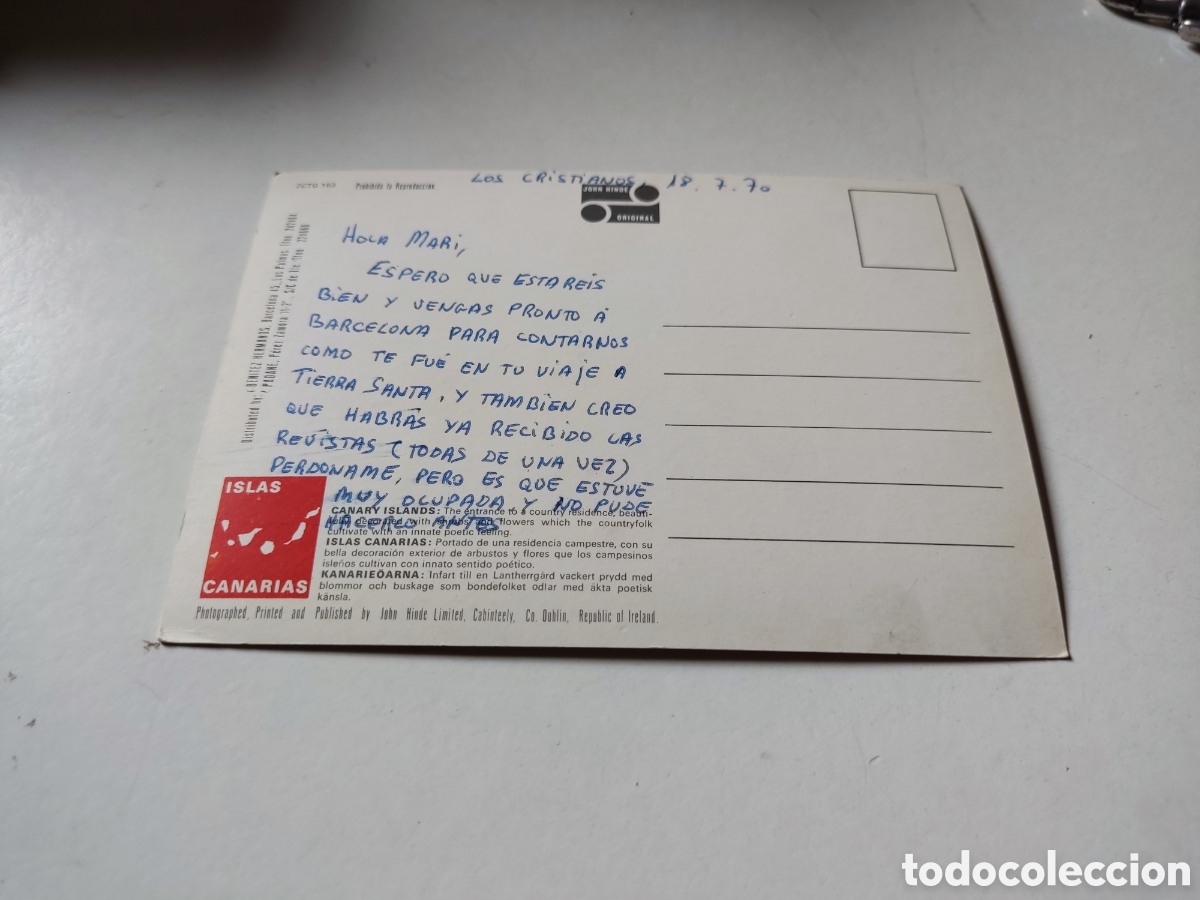 2CTG 163 Prohibida la Reproducción
LOS CRISTIANOS, 18.7.70
JOHN HINDE
ORIGINAL
HOLA MARI,
ESPERO QUE ESTAREIS
BIEN Y VENGAS PRONTO A
BARCELONA PARA CONTARNOS
COMO TE FUÉ EN TU VIAJE A
TIERRA SANTA, Y TAMBIEN CREO
QUE HABRÁS YA RECIBIDO LAS
REVISTAS (TODAS DE UNA VEZ)
PERDONAME, PERO ES QUE ESTUVE
MUY OCUPADA Y NO PUDE
HACERLO ANTES
Distributed by: BENITEZ HERMANOS, Barcelona 15, Las Palmas
PADANE, Perez Zamora
ISLAS
CANARIAS
CANARY ISLANDS: The entrance to a country residence, beauti-
fully decorated with shrubs and flowers which the countryfolk
cultivate with an innate poetic feeling.
ISLAS CANARIAS: Portado de una residencia campestre, con su
bella decoración exterior de arbustos y flores que los campesinos
isleños cultivan con innato sentido poético.
KANARIEÖARNA: Infart till en Lantherrgård vackert prydd med
blommor och buskage som bondefolket odlar med äkta poetisk
känsla.
Photographed, Printed and Published by John Hinde Limited, Cabinteely, Co. Dublin, Republic of Ireland.
todocoleccion